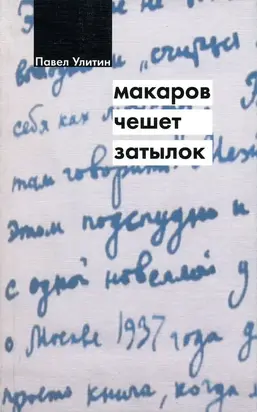 Павел Улитин
макаров
чешет
затылок
себя как
там говорит
этом подспудно и
с одной новеллой у
о Москве 1937 года д
просто книга, когда